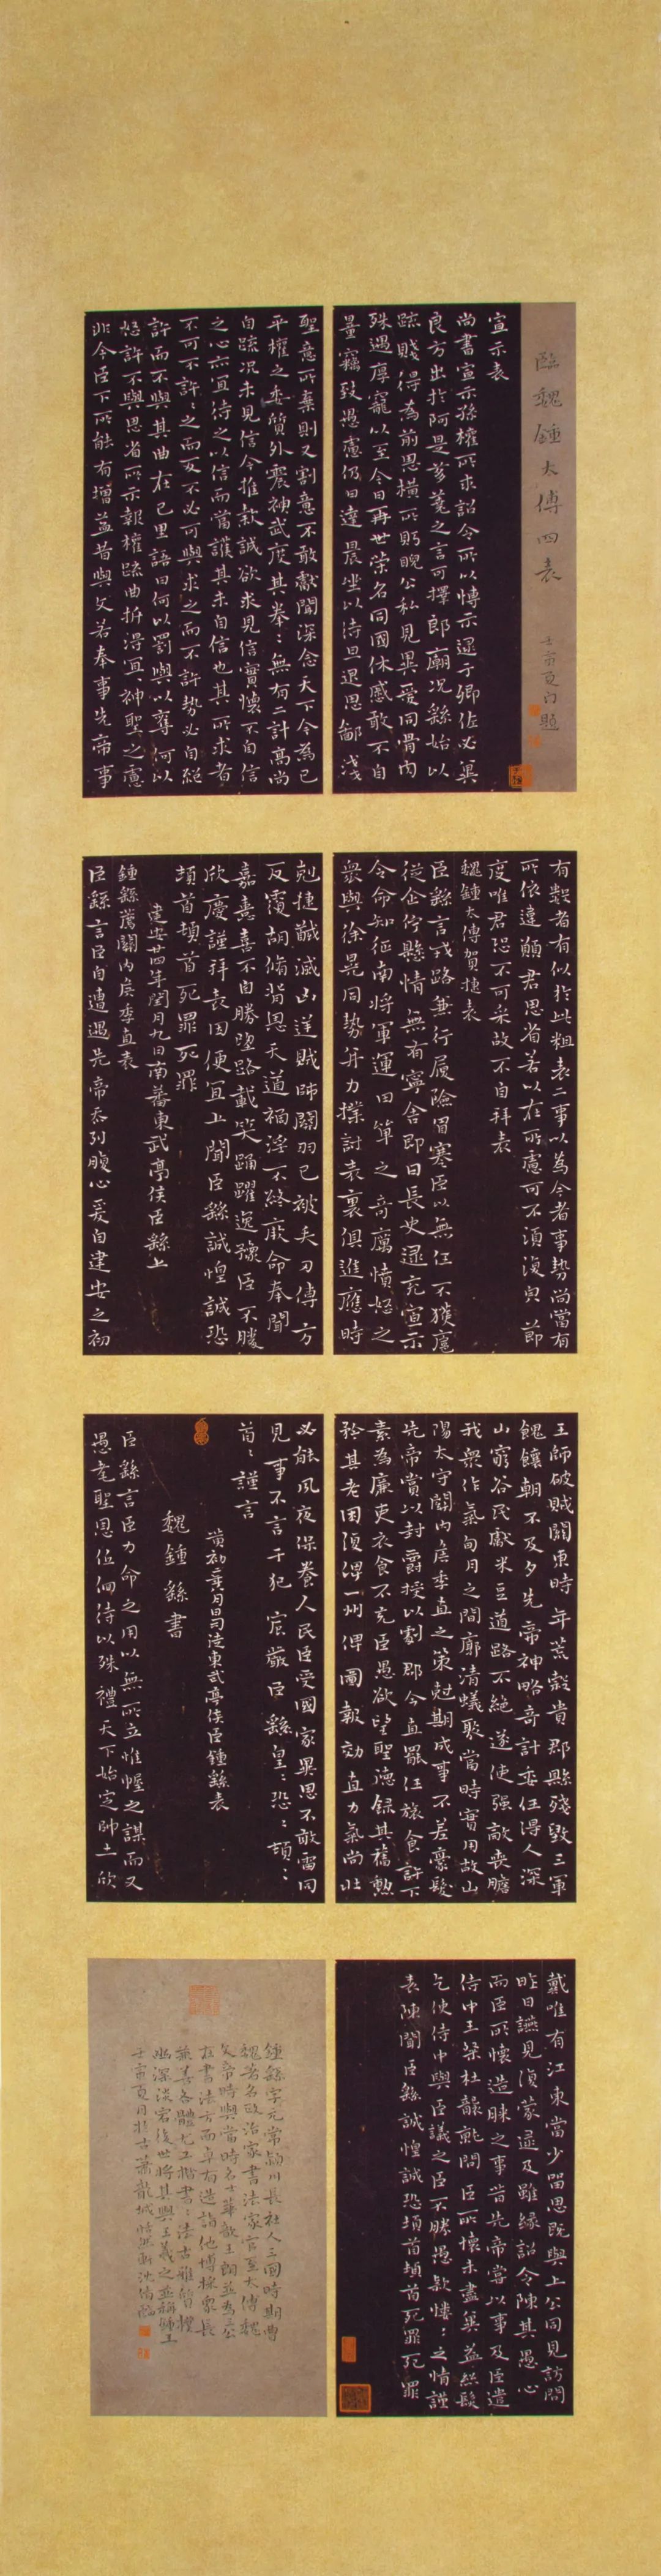 臨魏鍾太傅四表
壬寅夏月題
宣示表
尚書宣示孫權所求詔令所以博示逮于卿佐必冀
良方出於阿是芻蕘之言可擇郎廟况繇始以
疏賤得為前恩橫所盻睨公私見異愛同骨肉
殊遇厚寵以至今日再世榮名同國休慼敢不自
量竊致愚慮仍日達晨坐以待旦退思鄙淺
聖意所棄則又割意不敢獻聞深念天下今為已
平權之委質外震神武度其拳:無有二計高尚
自疏况未見信今推款誠欲求見信實懷不自信
之心亦宜待之以信而當護其未自信也其所求者
不可不許:之而反不必可與求之而不許勢必自絕
許而不與其曲在己里語曰何以罰與以奪何以
怒許不與思省所示報權疏曲折得宜神聖之慮
非今臣下所能有增益昔與文若奉事先帝事
有數者有似於此粗表二事以為今者事勢尚當有
所依違願君思省若以在所慮可不須復㒵節
度唯君恐不可采故不自拜表
魏鍾太傅賀捷表
臣繇言戎路兼行履險冒寒臣以無任不獲扈
從企佇懸情無有寧舍即日長史逯充宣示
令命知征南將軍運田單之奇厲憤怒之
眾與徐晃同勢并力撲討表裏俱進應時
剋捷馘滅凶逆賊帥關羽已被矢刃傅方
反覆胡脩背恩天道禍淫不終厥命奉聞
嘉憙喜不自勝望路載笑踊躍逸豫臣不勝
欣慶謹拜表因便宜上聞臣繇誠惶誠恐
頓首頓首死罪死罪
建安廿四年閏月九日南蕃東武亭侯臣繇上
鍾繇薦關內侯季直表
臣繇言臣自遭遇先帝忝列腹心爰自建安之初
王師破賊關東時年荒穀貴郡縣殘毀三軍
餽饟朝不及夕先帝神略奇計委任得人深
山窮谷民獻米豆道路不絕遂使强敵喪膽
我衆作氣旬月之間廓清蟻聚當時實用故山
陽太守關內侯季直之策剋期成事不差豪髮
先帝賞以封爵授以劇郡今直罷任旅食許下
素為廉吏衣食不充臣愚欲望聖德録其舊勲
矜其老困復俾一州俾圖報効直力氣尚壯
必能夙夜保養人民臣受國家異恩不敢雷同
見事不言干犯宸嚴臣繇皇:恐:頓:
首:謹言
黄初二年八月日司徒東武亭侯臣鍾繇表
魏鍾繇書
臣繇言臣力命之用以無所立惟幄之謀而又
愚耄聖恩伍佪待以殊禮天下始定帥土欣
戴唯有江東當少留思既與上公同見訪問
昨日䜩見復蒙逮及雖緣詔令陳其愚心
而臣所懷造膝之事昔先帝嘗以事及臣遣
侍中王粲杜襲就問臣所懷未盡冀益絲髮
乞使侍中與臣議之臣不勝愚款慺:之情謹
表陳聞臣繇誠惶誠恐頓首頓首死罪死罪
鍾繇字元常潁川長社人三國時期曹
魏著名政治家書法家官至太傅魏
文帝時與當時名士華歆王朗並為三公
在書法方面卓有造詣他博採衆長
兼善各體尤工楷書:法古雅
幽深淡宕後世將其與王羲之並稱鍾王
壬寅夏月於古蕭龍城